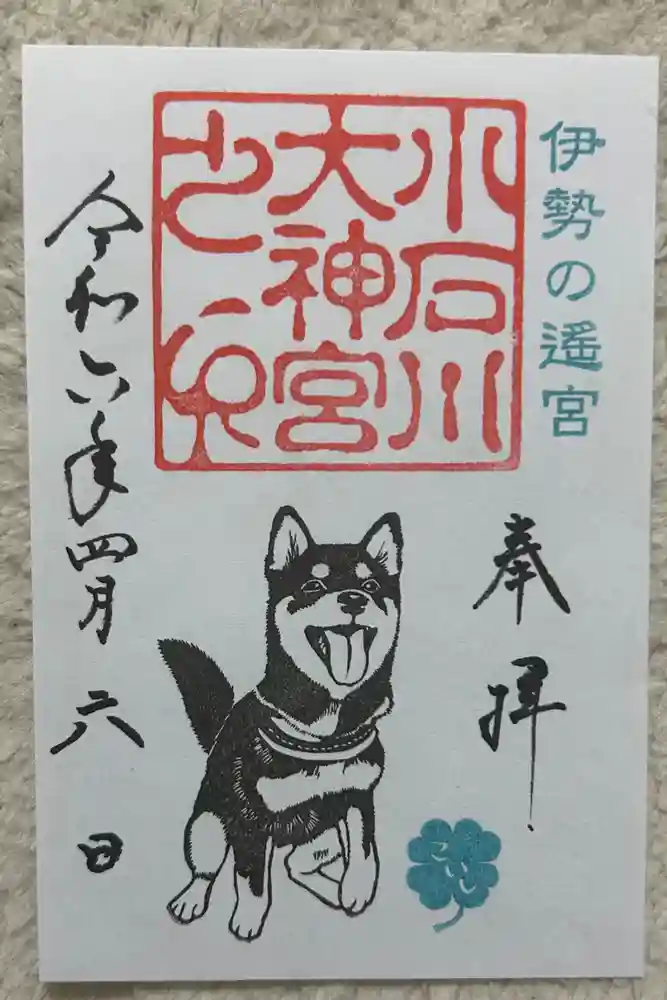 伊勢の遙宮
奉拝
小石川
大神宮
之印
令和六年四月六日